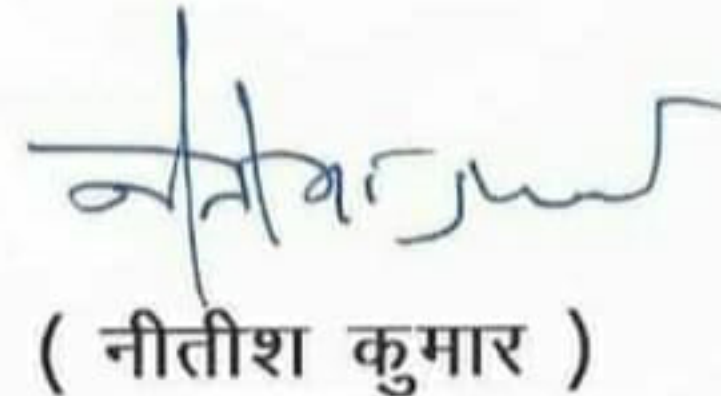 नीतीश कुमार
( नीतीश कुमार )